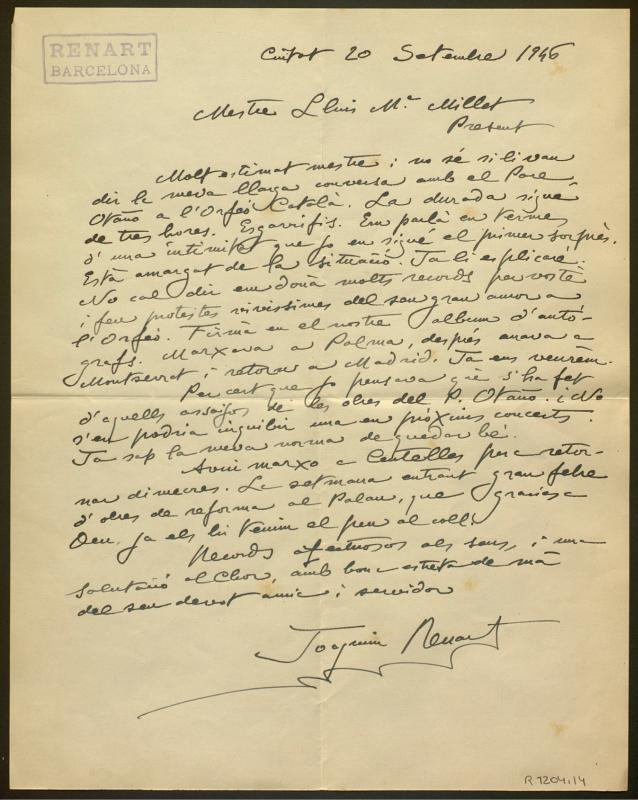 RENART
BARCELONA
Ciutat 20 Setembre 1946
Mestre Lluis Mª Millet
Present
Molt estimat mestre: no sé si li van
dir la meva llarga conversa amb el Pare
Otaño a l'Orfeó Català. La durada sigué
de tres hores. Esgarrifis. Em parlà en termes
d'una intimitat que jo en sigué el primer sorprès.
Està amargat de la situació. Ja li esplicaré.
No cal dir em donà molts records per vostè
i feu protestes vivissimes del seu gran amor a
l'Orfeó. Firmà en el nostre album d'autò-
grafs. Marxava a Palma, després anava a
Montserrat i retorna a Madrid. Ja ens veurèm.
Per cert que jo pensava què s'ha fet
d'aquells assaigs de les obres del P. Otaño. ¿No
s'en podria inguibir una en pròxims concerts.
Ja sap la meva norma de quedar bé.
Avui marxo a Centelles per a retor-
nar dimecres. La setmana entrant gran febre
d'obres de reforma al Palau, que gracies a
Deu, ja els hi tenim el peu al coll.
Records afectuosos als seus, i una
salutació al Chor, amb bona estreta de mà
del seu devot amic i servidor
Joaquim Renart
R 1204/4